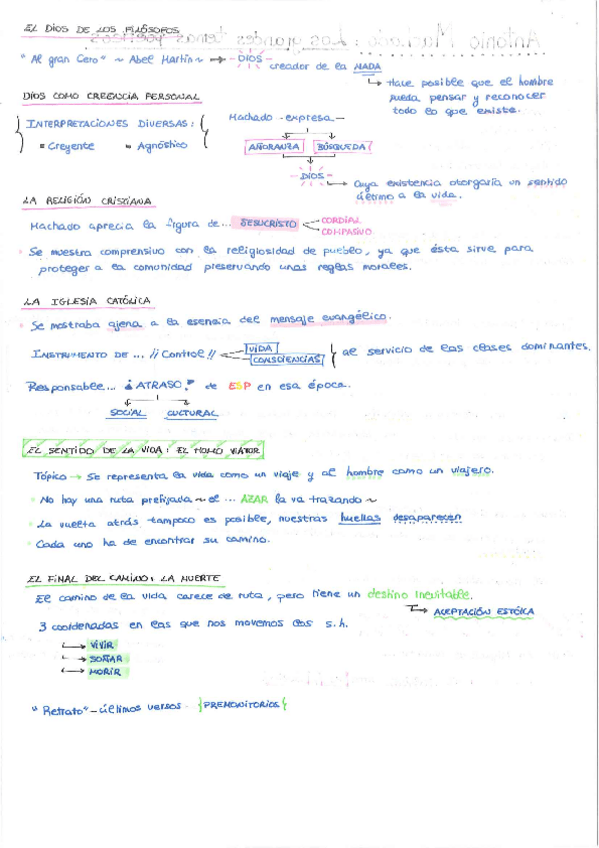 EL DIOS DE LOS FILÓSOFOS
"Al gran Cero" ~ Abel Martín ~ → DIOS
creador de la NADA
↳ Hace posible que el hombre
pueda pensar y reconocer
todo lo que existe.
DIOS COMO CREENCIA PERSONAL
INTERPRETACIONES DIVERSAS:
Creyente ~ Agnóstico
Machado - expresa -
AÑORANZA BÚSQUEDA
DIOS
↳ Cuya existencia otorgaría un sentido
último a la vida.
LA RELIGIÓN CRISTIANA
Machado aprecia la figura de... JESUCRISTO
CORDIAL
COMPASIVO
Se muestra comprensivo con la religiosidad de pueblo, ya que ésta sirve para
proteger a la comunidad preservando unas reglas morales.
LA IGLESIA CATÓLICA
Se mostraba ajena a la esencia del mensaje evangélico.
INSTRUMENTO DE ... // Control //
VIDA
CONSCIENCIAS
al servicio de las clases dominantes.
Responsable... ¿ATRASO? de ESP en esa época.
SOCIAL CULTURAL
EL SENTIDO DE LA VIDA: EL HOMO VIATOR
Tópico → Se representa la vida como un viaje y al hombre como un viajero.
No hay una ruta prefijada ~ el ... AZAR la va trazando ~
La vuelta atrás tampoco es posible, nuestras huellas desaparecen
Cada uno ha de encontrar su camino.
EL FINAL DEL CAMINO: LA MUERTE
El camino de la vida carece de ruta, pero tiene un destino inevitable.
↳ ACEPTACIÓN ESTOICA
3 coordenadas en las que nos movemos los s.h.
↳ VIVIR
↳ SOÑAR
↳ MORIR
"Retrato" - últimos versos {PREMONITORIOS}